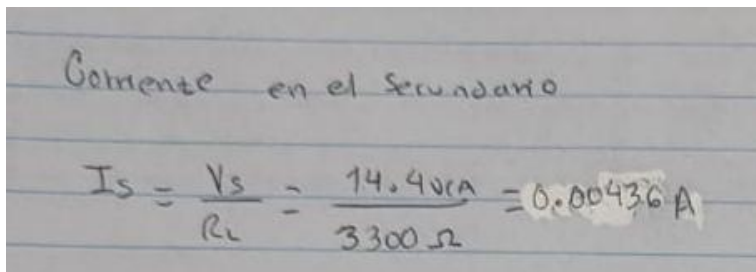 Corriente en el Secundario
Is = Vs / RL = 14.4 VCA / 3300 Ω = 0.00436 A